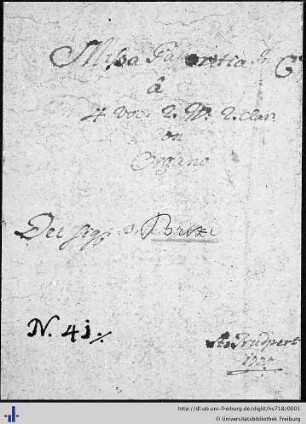 Missa Pastoritia
à
4 Voci 2. W. 2. Clar.
Organo
Del Sigg.
N. 41.
St. Trudpert
http://dl.ub.uni-freiburg.de/diglit/hs718/0001
© Universitätsbibliothek Freiburg